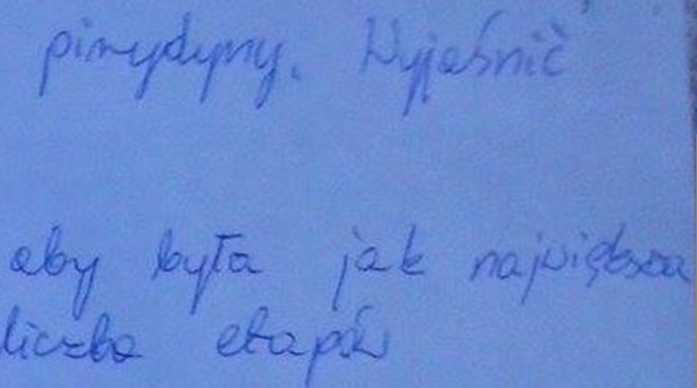 pirydyny. Wyjaśnić
aby była jak największa
liczba etapów